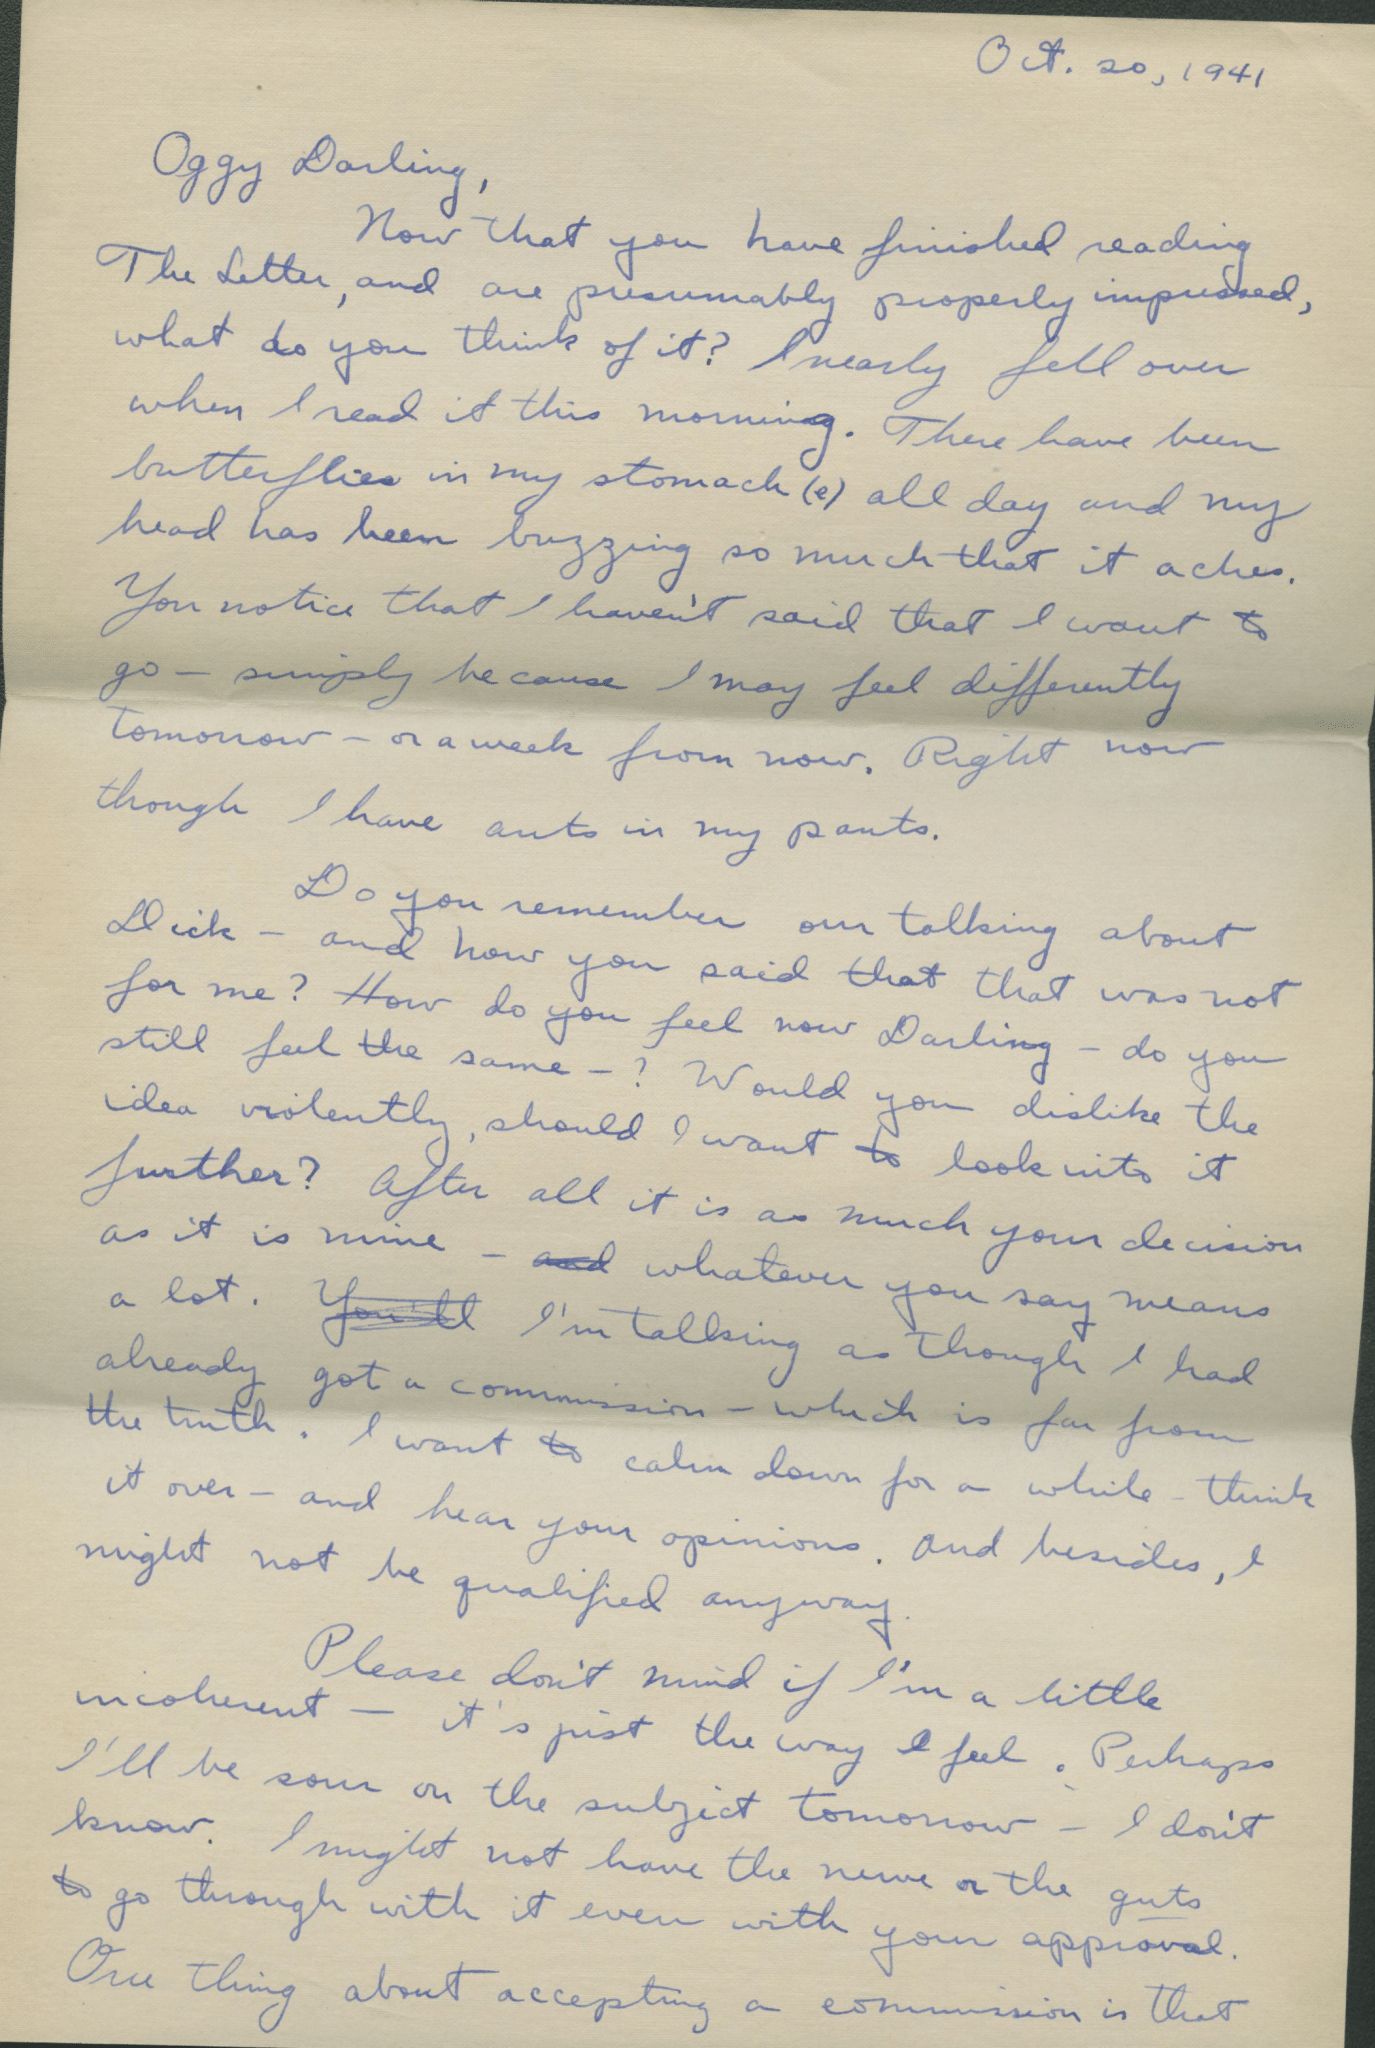 Oct. 20, 1941
Oggy Darling,
Now that you have finished reading
The Letter, and are presumably properly impressed,
what do you think of it? I nearly fell over
when I read it this morning. There have been
butterflies in my stomach (e) all day and my
head has been buzzing so much that it aches.
You notice that I haven't said that I want to
go - simply because I may feel differently
tomorrow - or a week from now. Right now
though I have ants in my pants.
Do you remember our talking about
Dick - and how you said that that was not
for me? How do you feel now Darling - do you
still feel the same - ? Would you dislike the
idea violently, should I want to look into it
further? After all it is as much your decision
as it is mine - and whatever you say means
a lot. You'll I'm talking as though I had
already got a commission - which is far from
the truth. I want to calm down for a while - think
it over - and hear your opinions. And besides, I
might not be qualified anyway.
Please don't mind if I'm a little
incoherent - it's just the way I feel. Perhaps
I'll be sour on the subject tomorrow - I don't
know. I might not have the nerve or the guts
to go through with it even with your approval.
One thing about accepting a commission is that